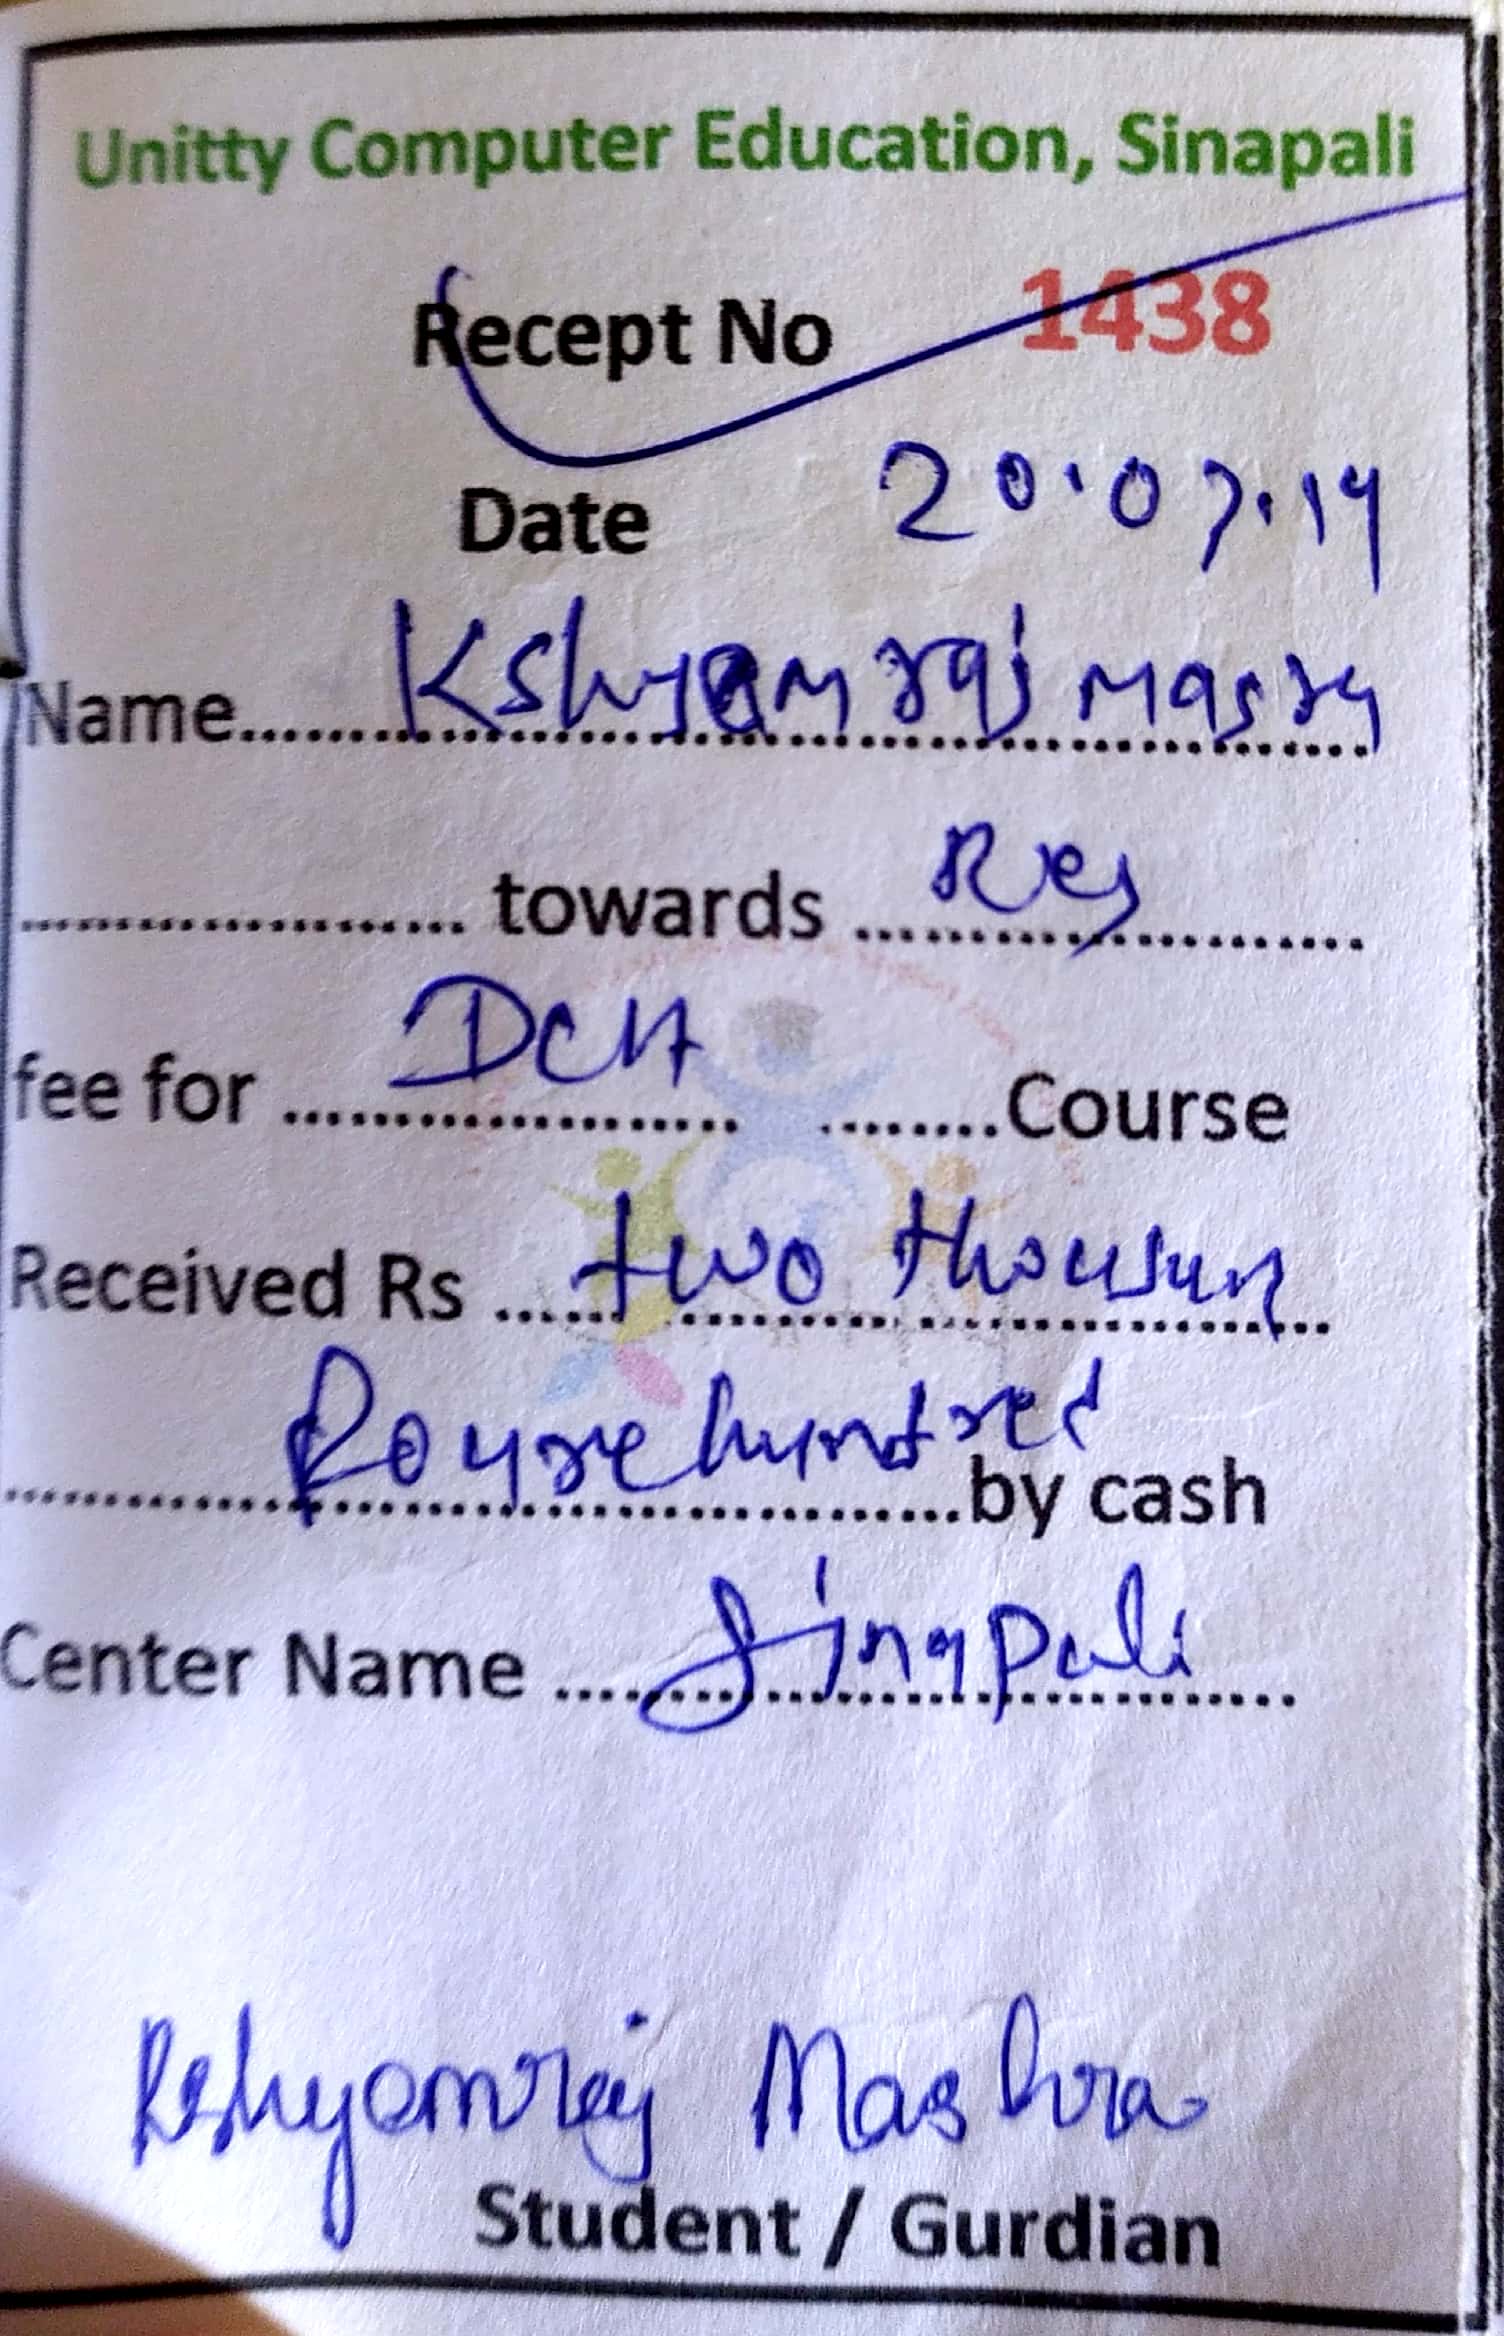 Unitty Computer Education, Sinapali
Recept No 1438
Date 20.07.19
Name........Kshyamraj Masra
...................... towards ...Reg...................
fee for ......DCA............ ........Course
Received Rs ......two thousun......
......Foure hundred......by cash
Center Name ......Sinapali......
Kshyamraj Mashra
Student / Gurdian